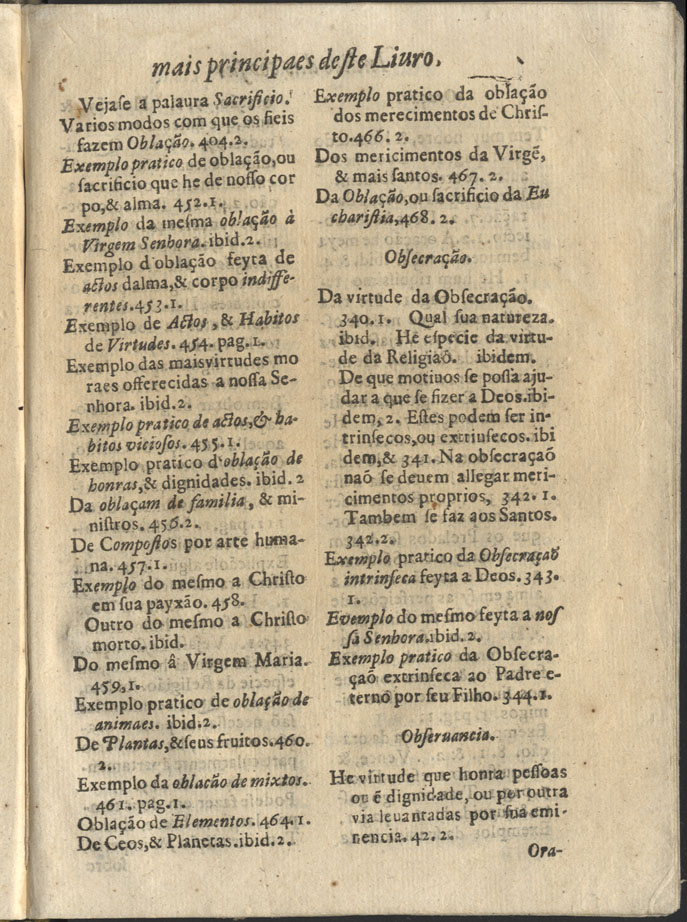 mais principaes deſte Liuro.
Vejaſe a palaura Sacrificio.
Varios modos com que os fieis
fazem Oblação. 404. 2.
Exemplo pratico de oblação, ou
ſacrificio que he de noſſo cor
po, & alma. 452. 1.
Exemplo da meſma oblação à
Virgem Senhora. ibid. 2.
Exemplo d'oblação feyta de
actos dalma, & corpo indiffe-
rentes. 453. 1.
Exemplo de Actos, & Habitos
de Virtudes. 454. pag. 1.
Exemplo das maisvirtudes mo
raes offerecidas a noſſa Se-
nhora. ibid. 2.
Exemplo pratico de actos, & ha-
bitos vicioſos. 455. 1.
Exemplo pratico d'oblação de
honras, & dignidades. ibid. 2
Da oblaçam de familia, & mi-
niſtros. 456. 2.
De Compoſtos por arte huma-
na. 457. 1.
Exemplo do meſmo a Chriſto
em ſua payxão. 458.
Outro do meſmo a Chriſto
morto. ibid.
Do meſmo â Virgem Maria.
459, 1.
Exemplo pratico de oblação de
animaes. ibid. 2.
De Plantas, & ſeus fruitos. 460.
2.
Exemplo da oblacão de mixtos.
461. pag. 1.
Oblação de Elementos. 464. 1.
De Ceos, & Planetas. ibid. 2.
Exemplo pratico da oblação
dos merecimentos de Chriſ-
to. 466. 2.
Dos mericimentos da Virgẽ,
& mais ſantos. 467. 2.
Da Oblação, ou ſacrificio da Eu
chariſtia, 468. 2.
Obſecração.
Da virtude da Obſecração.
340. 1. Qual ſua natureza.
ibid. He eſpecie da virtu-
de da Religiaõ. ibidem.
De que motiuos ſe poſſa aju-
dar a que ſe fizer a Deos. ibi-
dem, 2. Eſtes podem ſer in-
trinſecos, ou extrinſecos. ibi
dem, & 341. Na obſecraçaõ
naõ ſe deuem allegar meri-
cimentos proprios, 342. 1.
Tambem ſe faz aos Santos.
342. 2.
Exemplo pratico da Obſecraçaõ
intrinſeca feyta a Deos. 343.
1.
Evemplo do meſmo feyta a noſ
ſa Senhora. ibid. 2.
Exemplo pratico da Obſecra-
çaõ extrinſeca ao Padre e-
terno por ſeu Filho. 344. 1.
Obſeruancia.
He virtude que honra peſſoas
ou ẽ dignidade, ou por outra
via leuantadas por ſua emi-
nencia. 42. 2.
Ora-